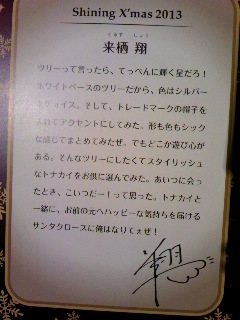 Shining X'mas 2013
くるす しょう
来栖 翔
ツリーって言ったら、てっぺんに輝く星だろ!
ホワイトベースのツリーだから、色はシルバー
とグレイス。そして、トレードマークの帽子を
入れてアクセントにしてみた。形も色もシック
な感じでまとめてみたぜ、でもどこか遊び心が
ある。そんなツリーにしたくてスタイリッシュ
なトナカイをお供に選んでみた。あいつに会っ
たとき、こいつだー!って思った。トナカイと
一緒に、お前の元へハッピーな気持ちを届ける
サンタクロースに俺はなりてぇぜ!
翔